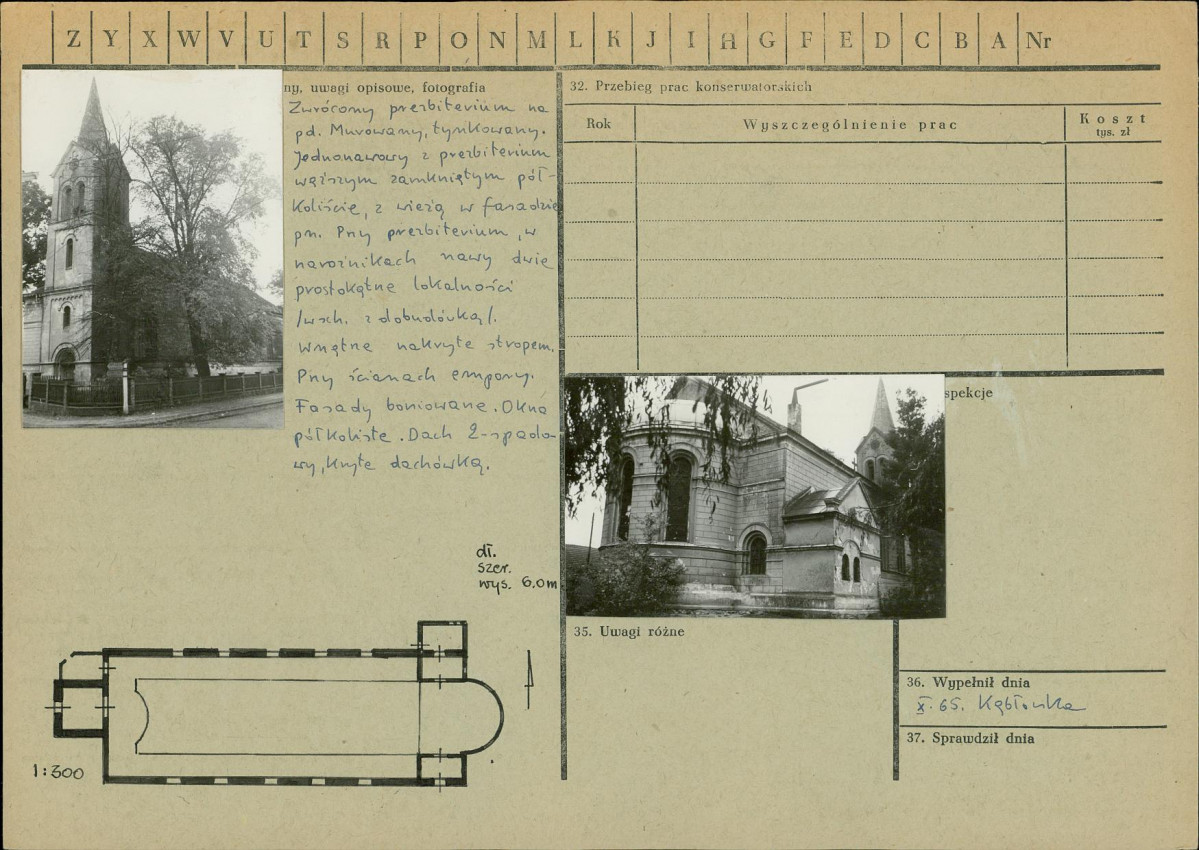 Z Y X W V U T S R P O N M L K J I H G F E D C B A Nr
ny, uwagi opisowe, fotografia
Zwrócony prezbiterium na
pd. Murowany, tynkowany.
Jednonawowy z prezbiterium
węższym zamkniętym pół-
koliście, z wieżą w fasadzie
pn. Przy prezbiterium, w
narożnikach nawy dwie
prostokątne lokalności
/wsch. z dobudówką/.
Wnętrze nakryte stropem.
Przy ścianach empory.
Fasady boniowane. Okna
półkoliste. Dach 2-spado-
wy, kryte dachówką.
dł.
szer.
wys. 6,0m
1:300
32. Przebieg prac konserwatorskich
Rok
Wyszczególnienie prac
Koszt
tys. zł
spekcje
35. Uwagi różne
36. Wypełnił dnia
X. 65.
37. Sprawdził dnia